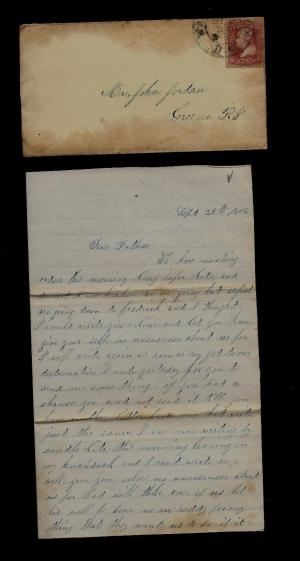 Mr. John Jordan
Greene R I
Sept 29th 1862
Dear Father
We have marching
orders this morning long before lite and
do not know where we are going but expect
we going down to fredrick and I thought
I would write you a line and let you know
give your selfs no uneaseness about us for
I will write again as soon as we get to our
destination I wrote yesterday for you to
send me some things if you had a
chance you need not send it till you
hear another letter from me but write
just the same I am now writing by
candle lite this morning leaning on
my knapsack and I cant write very
well give your selves no uneaseness about
us for God will take care of us let
his will be done we are ready for any
thing that they want us to do if it